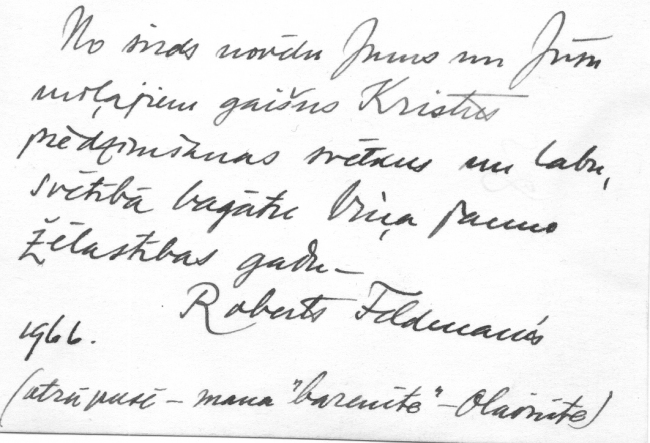 No sirds novēlu Jums un Jūsu
mīļajiem gaišus Kristus
piedzimšanas svētkus un labu,
svētībā bagātu Viņa jauno
žēlastības gadu —
Roberts Feldmanis
1966.
(otrā pusē — mana "baznīciņa" — Olainīte)